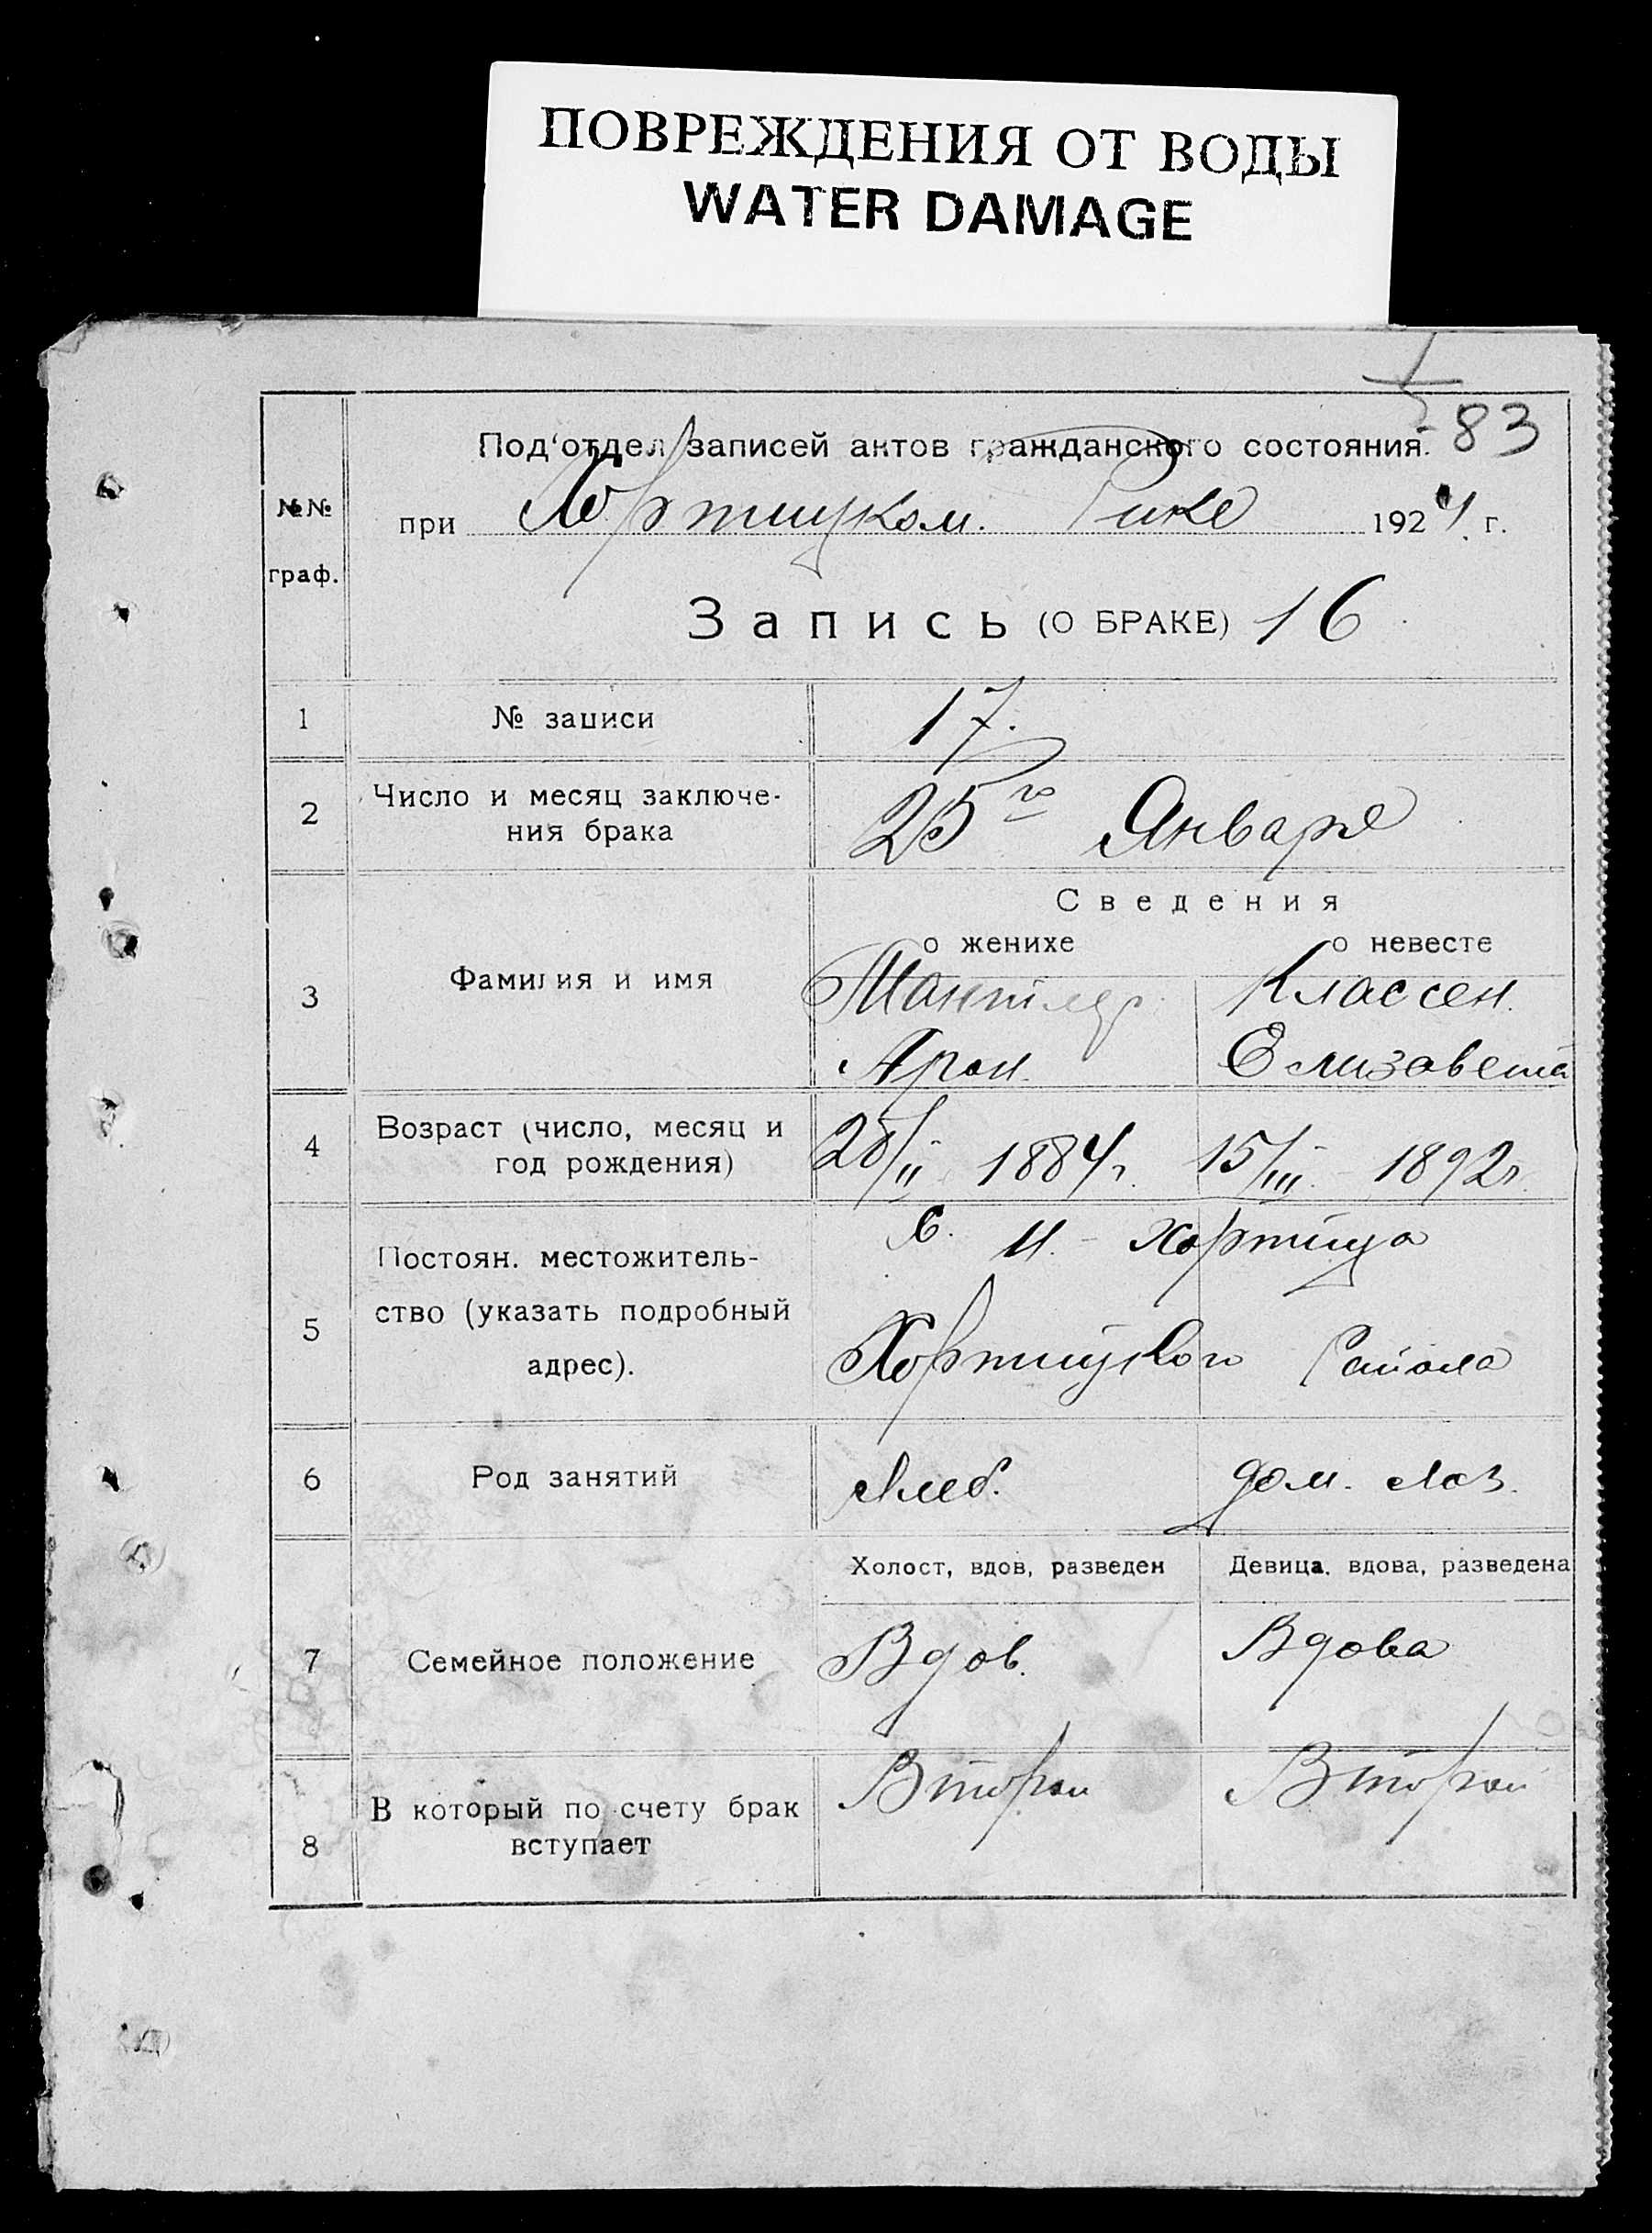 ПОВРЕЖДЕНИЯ ОТ ВОДЫ
WATER DAMAGE
83
№№ граф.
Под'отдел записей актов гражданского состояния.
при Хортицком. Рике 1924 г.
Запись (О БРАКЕ) 16
1 № записи 17.
2 Число и месяц заключе-
ния брака 25го Января
Сведения
о женихе о невесте
3 Фамилия и имя Классен.
Арон. Елизавета
4 Возраст (число, месяц и
год рождения) 28/II 1884г. 15/III. 1892г.
5 Постоян. местожитель-
ство (указать подробный
адрес).
с. Н.-Хортица
Хортицкого Района
6 Род занятий Хлеб. дом. хоз.
Холост, вдов, разведен Девица, вдова, разведена
7 Семейное положение Вдов. Вдова
8 В который по счету брак
вступает Второй Второй